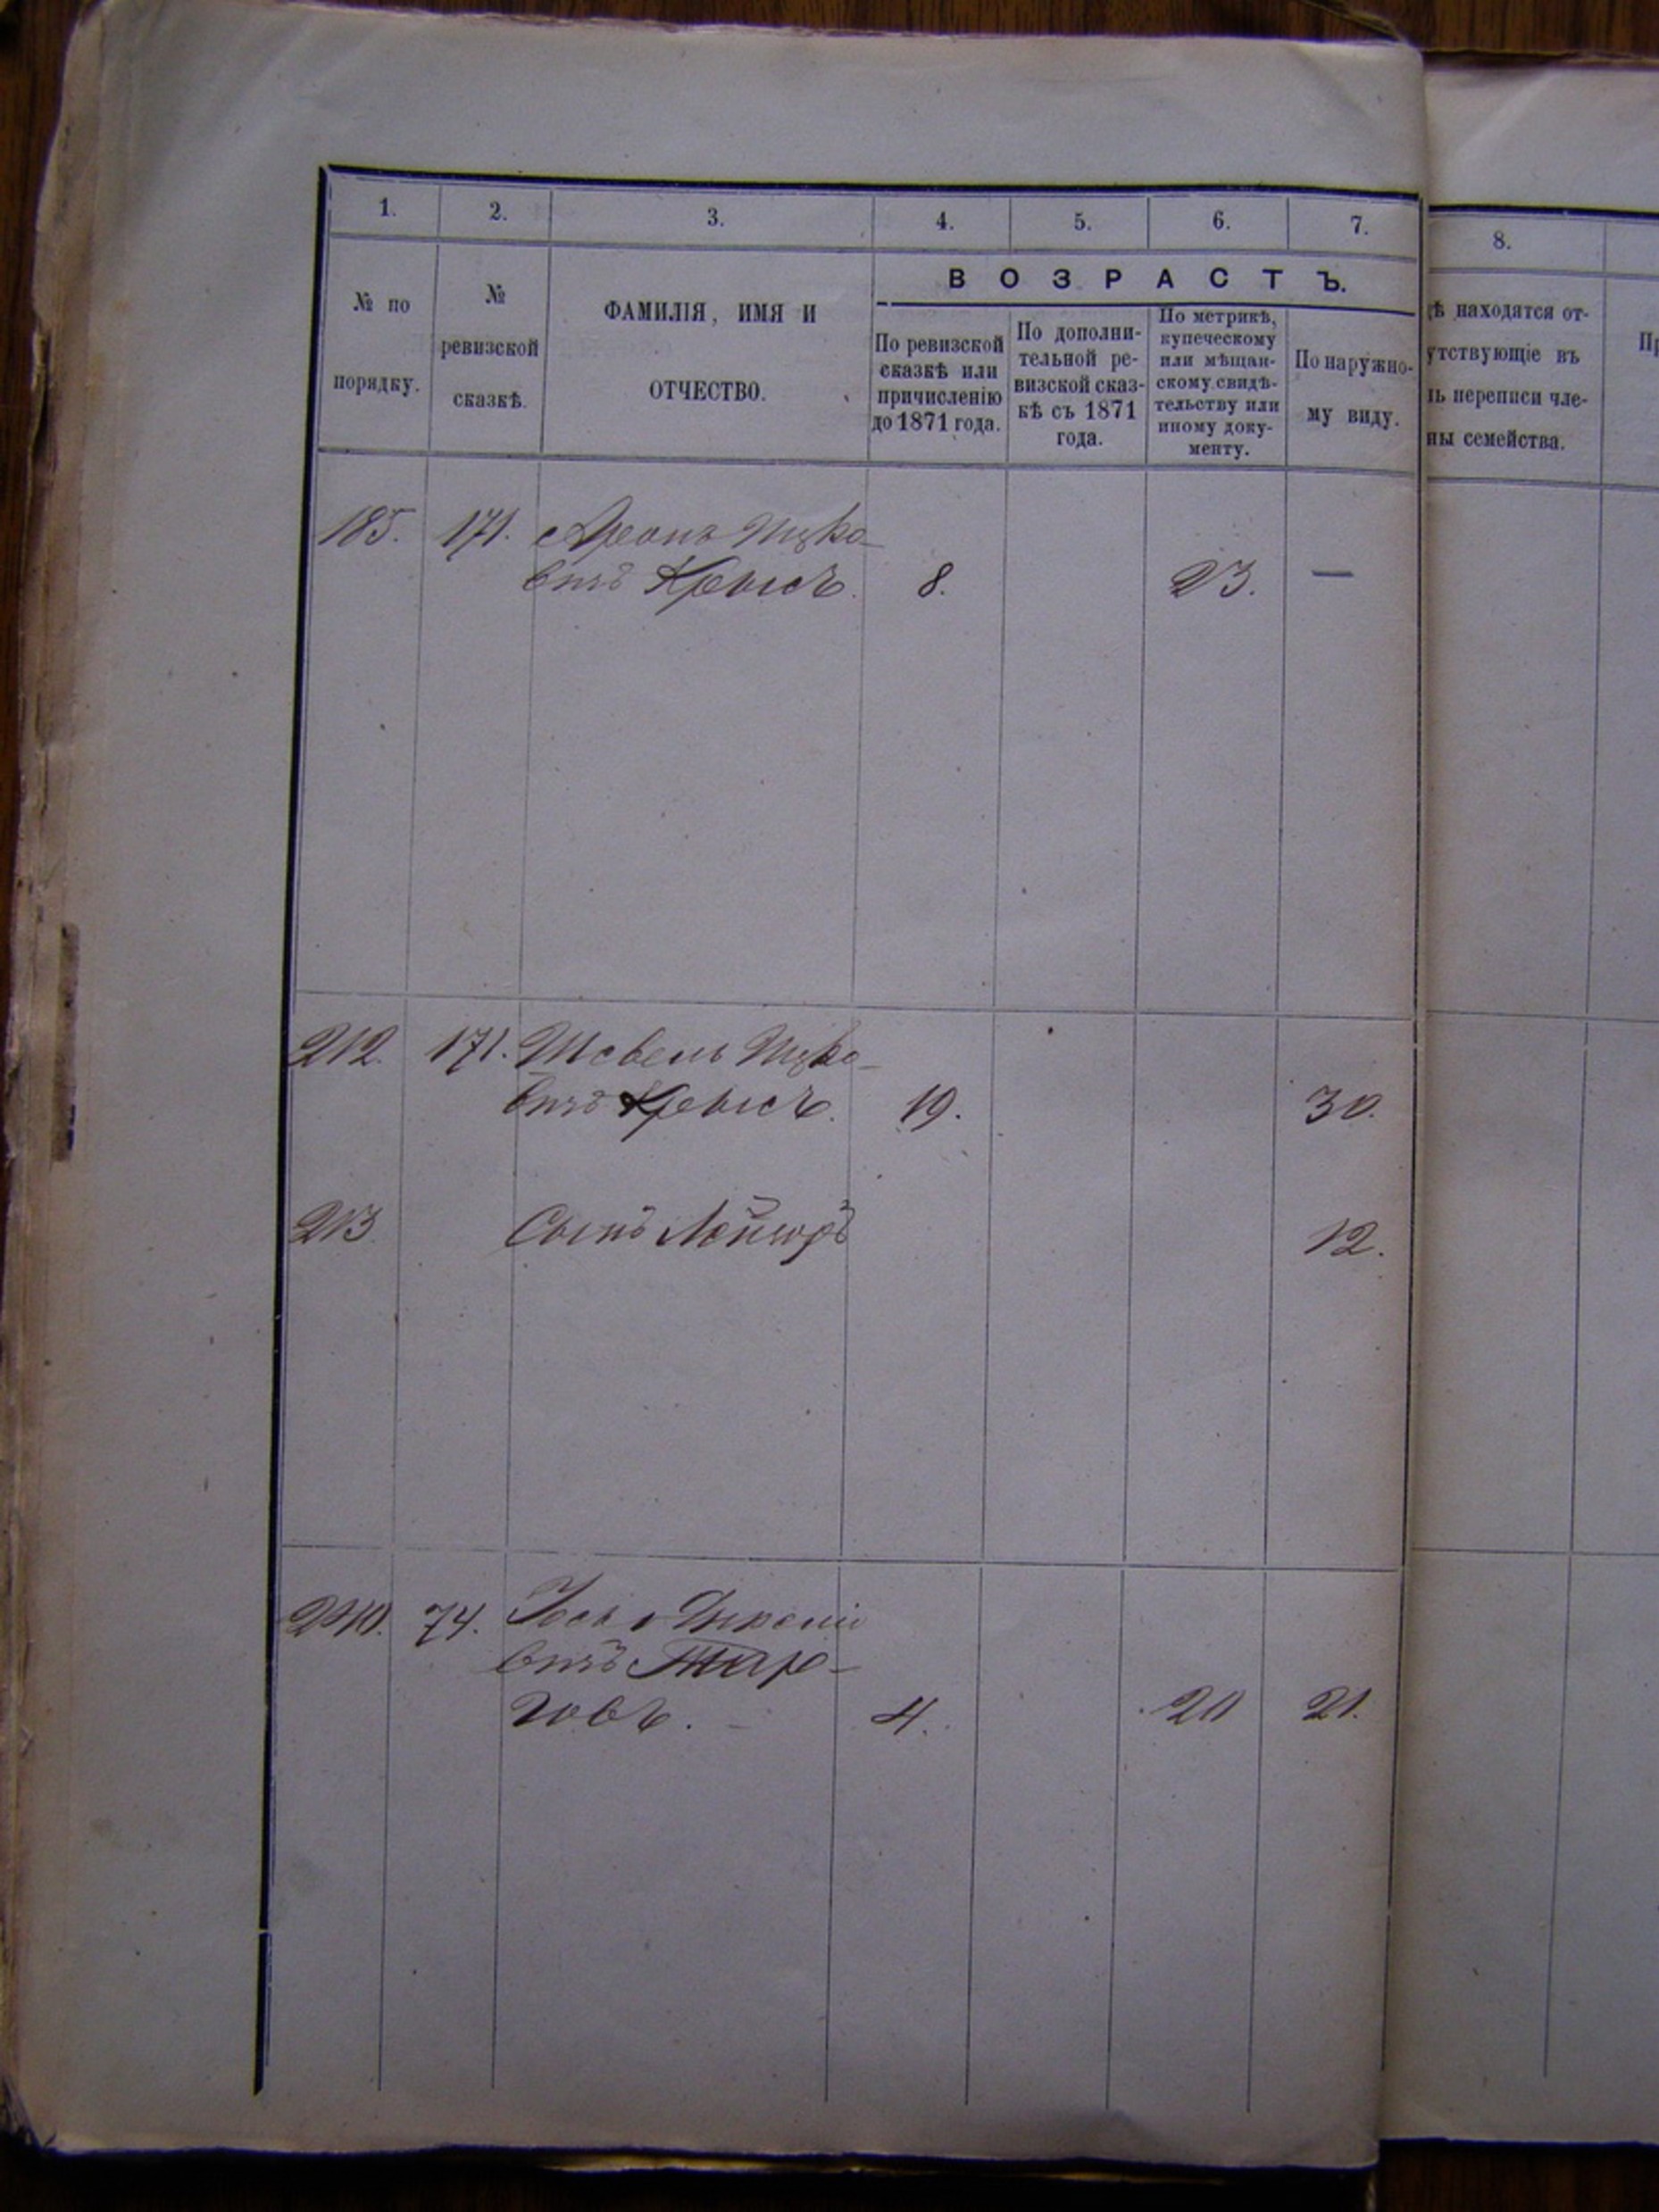 1. 2. 3. 4. 5. 6. 7. 8.
ВОЗРАСТЪ.
№ по
порядку.
№
ревизской
сказкѣ.
ФАМИЛІЯ, ИМЯ И
ОТЧЕСТВО.
По ревизской
сказкѣ или
причисленію
до 1871 года.
По дополни-
тельной ре-
визской сказ-
кѣ съ 1871
года.
По метрикѣ,
купеческому
или мѣщан-
скому свидѣ-
тельству или
иному доку-
менту.
По наружно-
му виду.
ѣ находятся от-
утствующіе въ
ь переписи чле-
ны семейства.
185. 171. Аронъ Ицко-
вичъ Крысъ. 8. 23. —
212. 171. Шевель Ицко-
вичъ Крысъ. 19. 30.
213 Сынъ Лейзоръ 12.
74.
вичъ
4. 20 21.